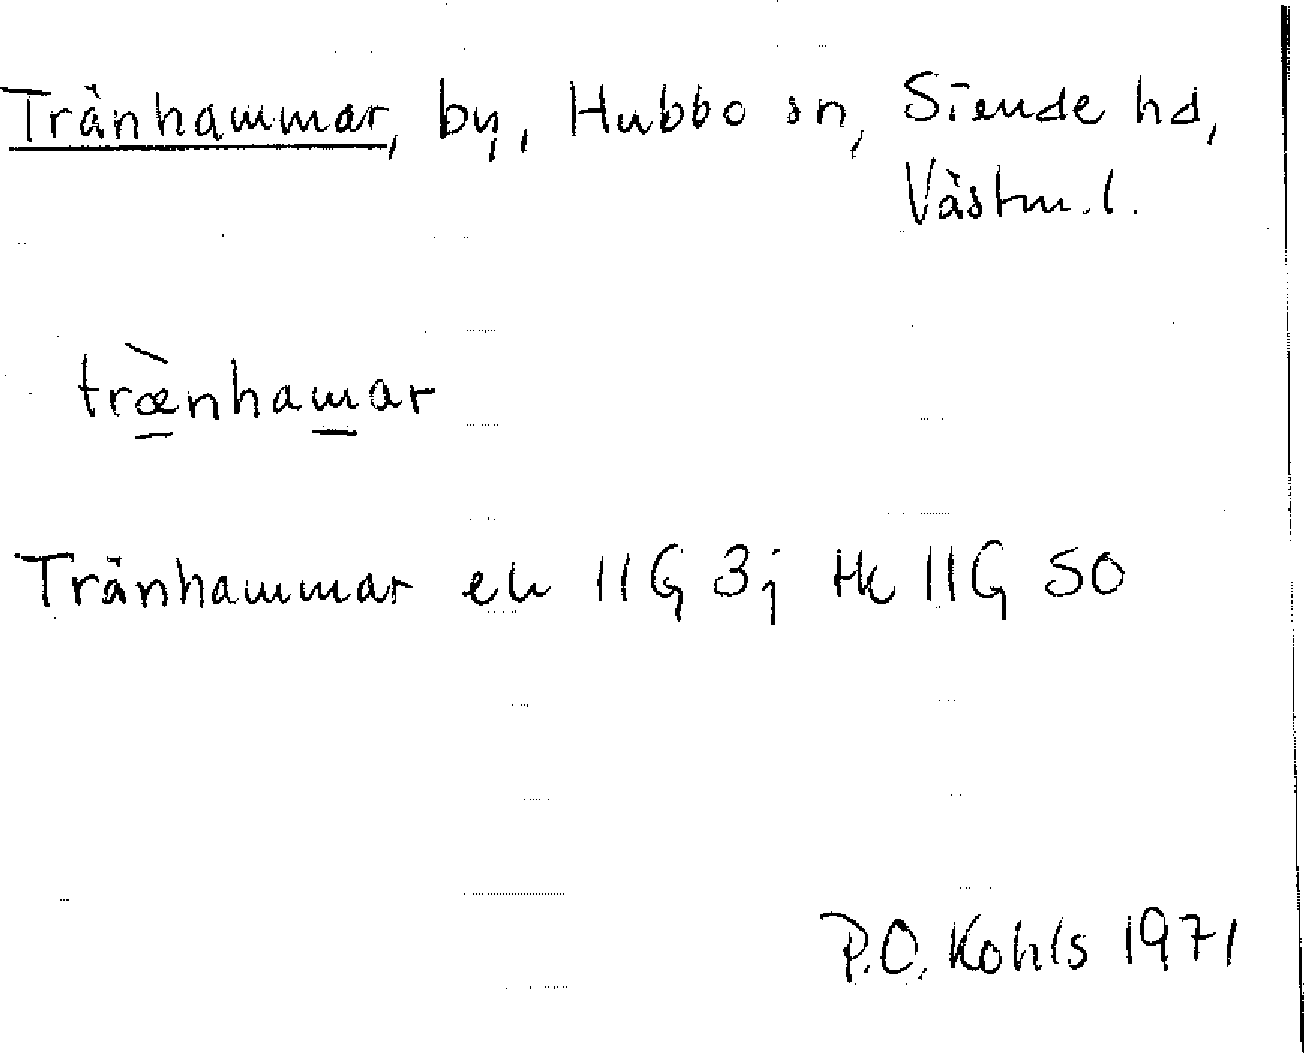 Tränhammar, by, Hubbo sn, Siende hd,
Västm. l.
træ̀nhamar
Tränhammar ek 11G 3j Hk 11G SO
P.O. Kohls 1971